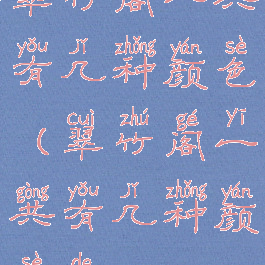 翠竹阁一共
yǒu jǐ zhǒng yán sè
有几种颜色
cuì zhú gé yī
(翠竹阁一
gòng yǒu jǐ zhǒng yán
共有几种颜
sè de